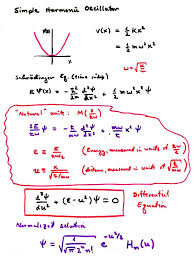 Simple Harmonic Oscillator
V(x) = ½ Kx²
= ½ mω²x²
Schrödinger Eq. (time indep)
Eψ(x) = -ħ²/2m d²ψ/dx² + ½ mω²x² ψ
"Natural" unit:
(Energy, measured in units of
(Distance, measured in units of
d²ψ/du² + (ε-u²)ψ = 0
Differential
Equation
Normalized solution
ψ = 1/√(√π 2ⁿ n!) e^(-u²/2) Hₙ(u)